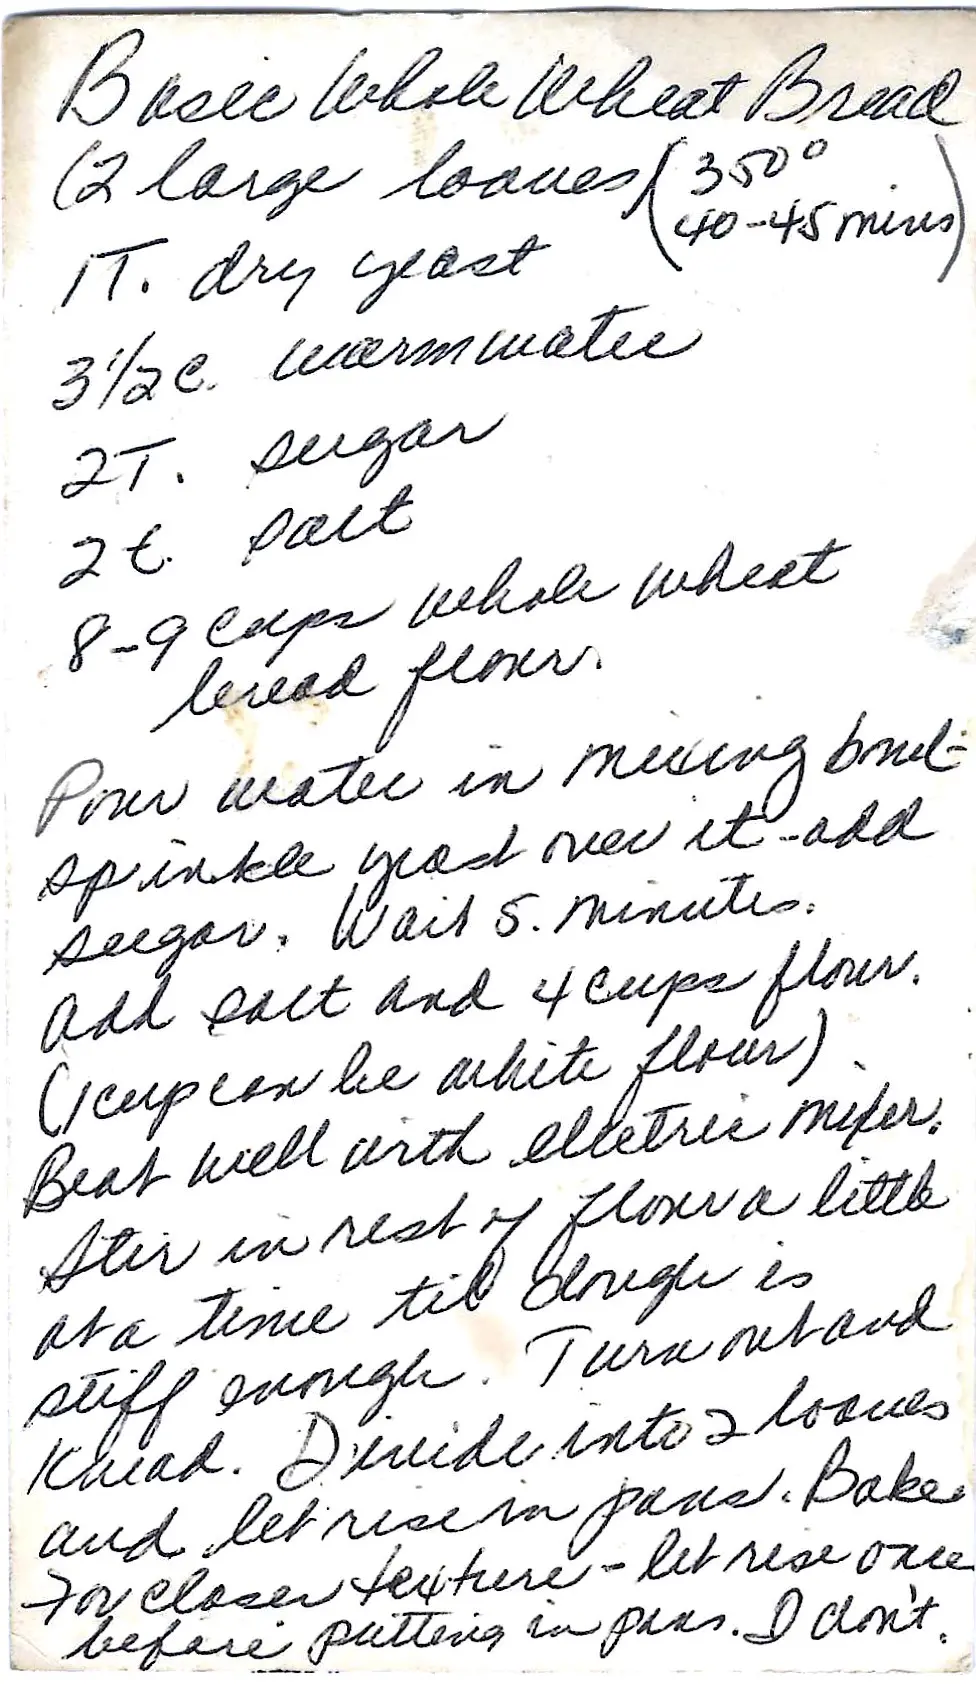 Basic Whole Wheat Bread
(2 large loaves) (350°
40-45 mins)
1T. dry yeast
3 1/2 c. warm water
2T. sugar
2t. salt
8-9 cups whole wheat
bread flour.
Pour water in mixing bowl-
sprinkle yeast over it - add
sugar. Wait 5. minutes.
Add salt and 4 cups flour.
(1 cup can be white flour).
Beat well with electric mixer.
Stir in rest of flour a little
at a time til dough is
stiff enough. Turn out and
Knead. Divide into 2 loaves
and let rise in pans. Bake
For closer texture - let rise once
before putting in pans. I don't.